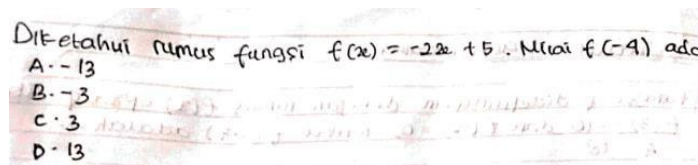 Diketahui rumus fungsi f(x) = -2x + 5. Nilai f(-4) ada
A. -13
B. -3
C. 3
D. 13